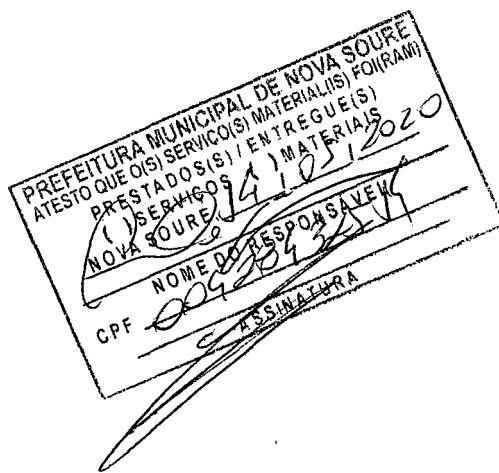 PREFEITURA MUNICIPAL DE NOVA SOURE
ATESTO QUE O(S) SERVIÇO(S) MATERIAL(IS) FOI(RAM)
PRESTADOS(S) / ENTREGUE(S)
( ) SERVIÇOS ( ) MATERIAIS
NOVA SOURE 14 2020
NOME DO RESPONSÁVEL
CPF
ASSINATURA